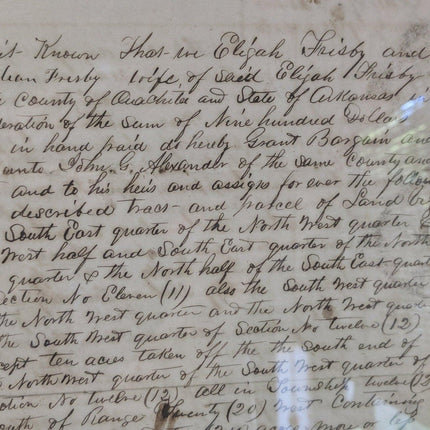 it Known That we Elijah Frisby and
Frisby wife of Said Elijah Frisby
County of Ouachita and State of Arkansas in
eration of the Sum of Nine hundred Dollars
in hand paid do hereby Grant Bargain and
unto John G. Alexander of the Same County and
and to his heirs and assigns for ever the follow
described tract and parcel of Land
South East quarter of the North West quarter
West half and South East quarter of the North
quarter & the North half of the South East quarter
Section No Eleven (11) also the South West quarter
the North West quarter and the North West quarter
the South West quarter of Section No twelve (12)
ept ten acres taken off the the South end of
North West quarter of the South West quarter of
ction No twelve (12) all in Township twelve (12
outh of Range Twenty (20) West Containing
acres more or less